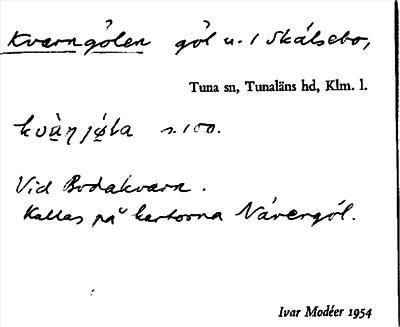 Kvarngölen göl u. / Skälsebo,
Tuna sn, Tunaläns hd, Klm. l.
s. 100.
Vid Bodakvarn.
Kallas på kartorna Návergöl.
Ivar Modéer 1954